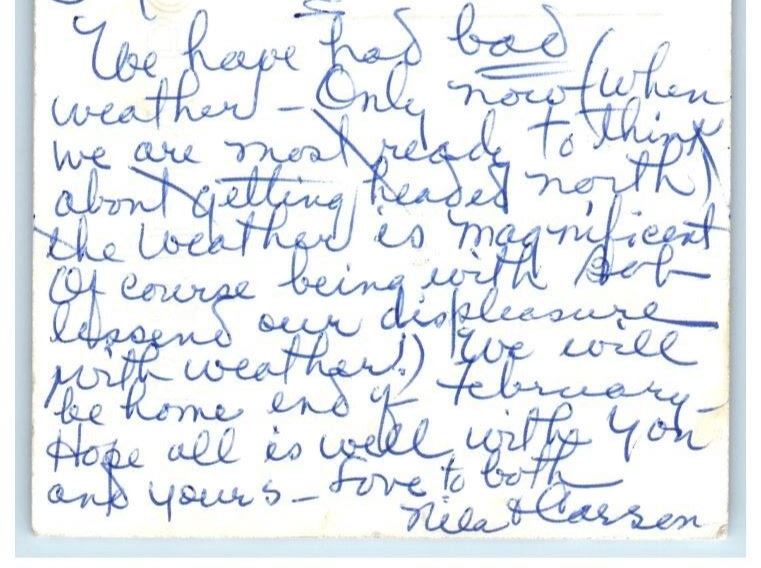 We have had bad
weather - Only now (when
we are most ready to think
about getting headed north)
the weather is magnificent
Of course being with Bob
lessend our displeasure
with weather!) We will
be home end of February -
Hope all is well with you
and yours - Love to both
Nila & Carsen